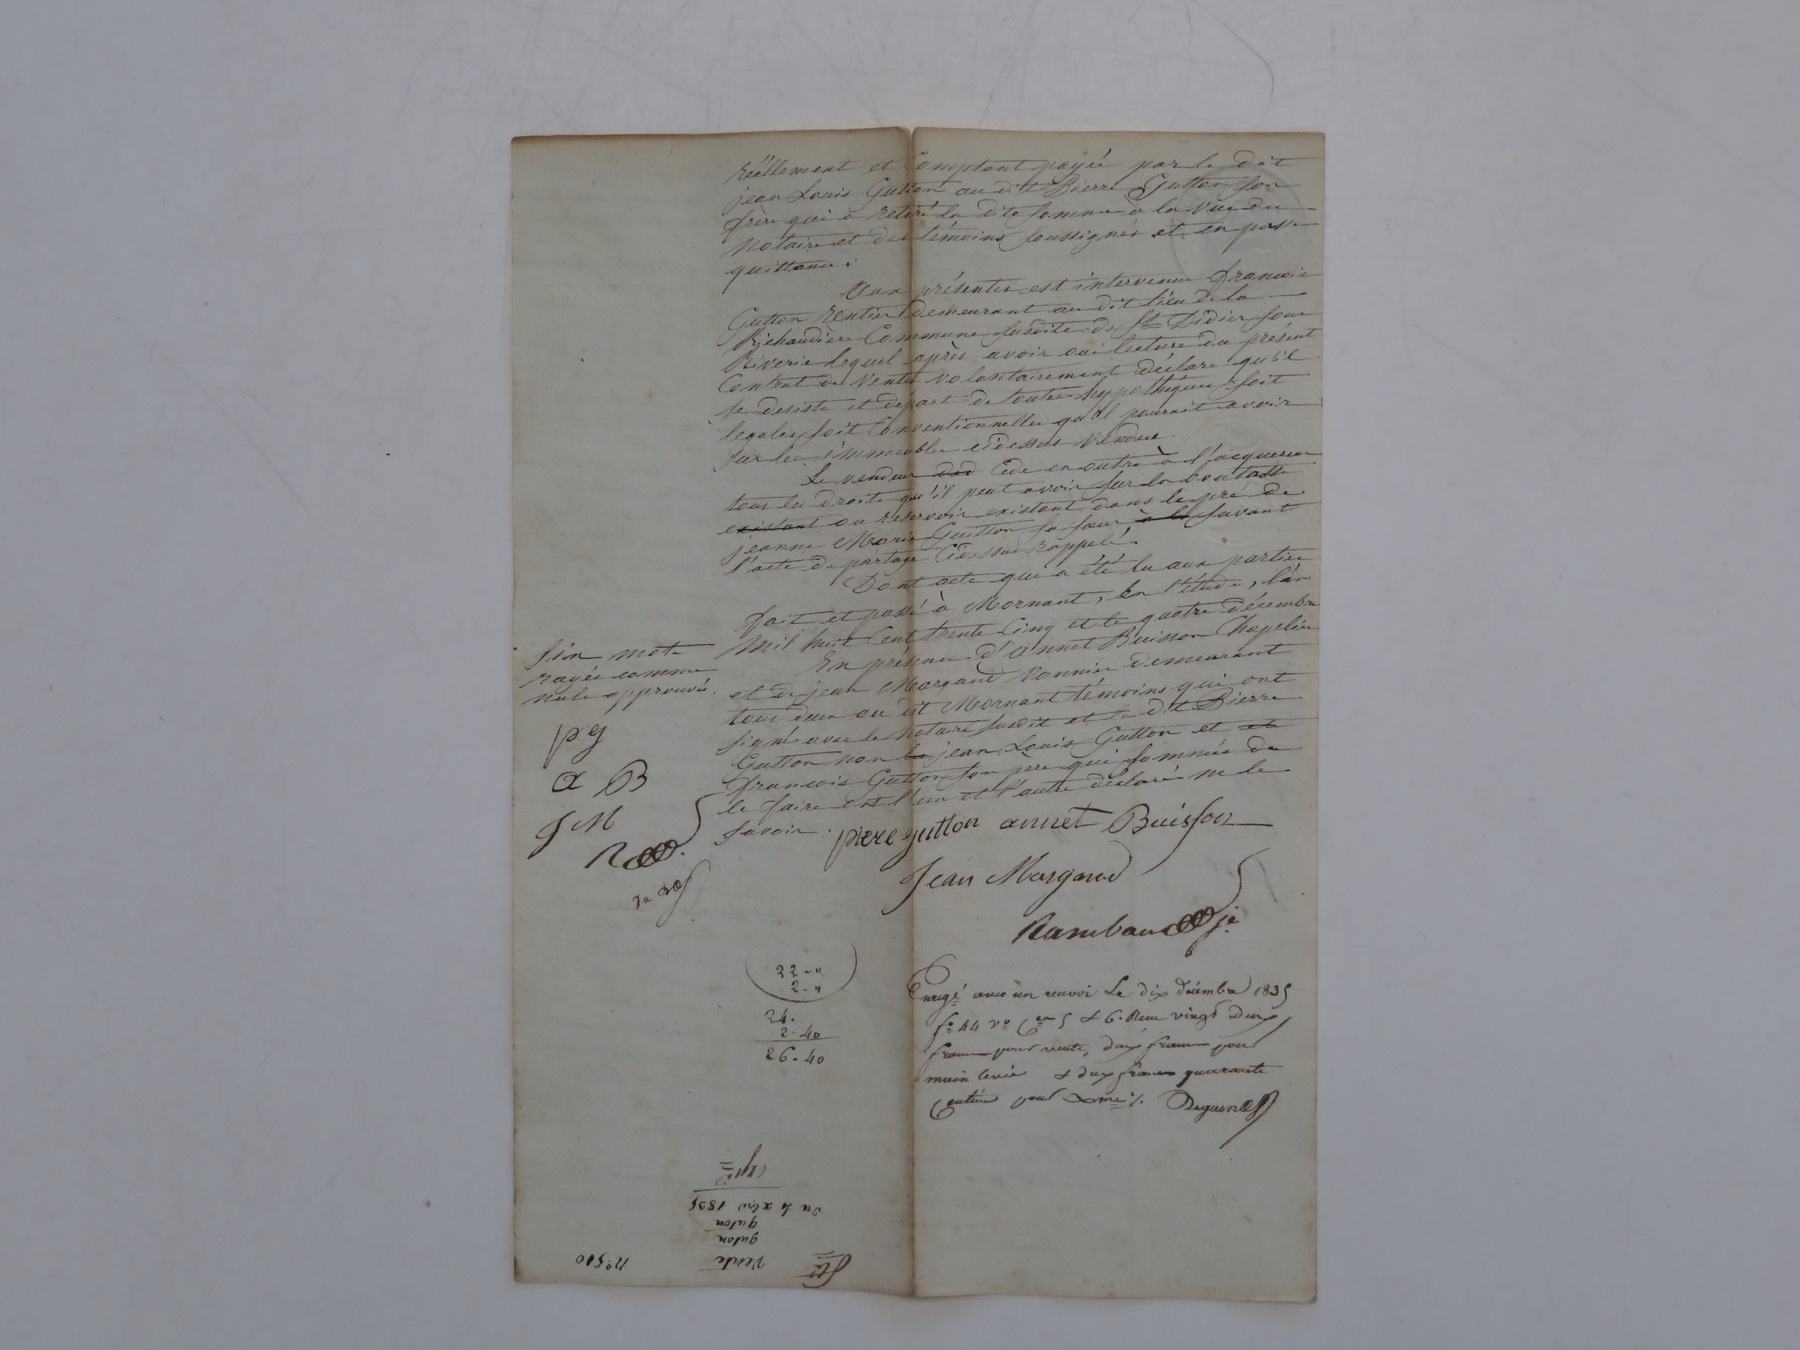 réellement et Comptant payée par le dit
jean Louis Gutton au dit Pierre Gutton son
frère qui a retiré la dite somme à la vue du
Notaire et des témoins soussignés et en passe
quittance.
Aux présentes est intervenu françois
Gutton rentier demeurant au dit lieu de la
Commune susdite de St Didier sous
Riverie lequel après avoir oui lecture du présent
Contrat de Vente volontairement déclare qu'il
se desiste et départ de toutes hypothèques soit
legales soit Conventionnelles qu'il pourrait avoir
sur les immeubles cidessus vendus
Le vendeur Cède en outre à l'acquereur
tous les droits qu'il peut avoir sur la boutasse
existant ou réservoir existant dans le pré de
jeanne Marie Gutton sa sœur à la suivant
l'acte de partage Cidessus rappelé.
Dont acte qui a été lu aux parties
fait et passé à Mornant, en l'étude, l'an
Mil huit Cent trente Cinq et le quatre décembre
En présence d'annet Buisson Chapelier
et de jean Margand Vannier demeurant
tous deux au dit Mornant témoins qui ont
signé avec le Notaire susdit et le dit Pierre
Gutton non le jean Louis Gutton et
françois Gutton son père qui sommés de
le faire ont l'un et l'autre déclaré ne le
savoir.
Six mots
rayés comme
nuls approuvés.
pg
a B
J M
R
pierre gutton annet Buisson
Jean Margand
Rambaud
22-"
2-"
24.
2.40
26.40
Enregé avec un renvoi Le dix décembre 1835
fo 44 Vo Cen 5 & 6. Reçu vingt deux
francs pour vente, deux francs pour
main levée & deux francs quarante
Centimes pour Dme.
Expé
du 4 xbre 1835
guton
guton
Vente
No 510